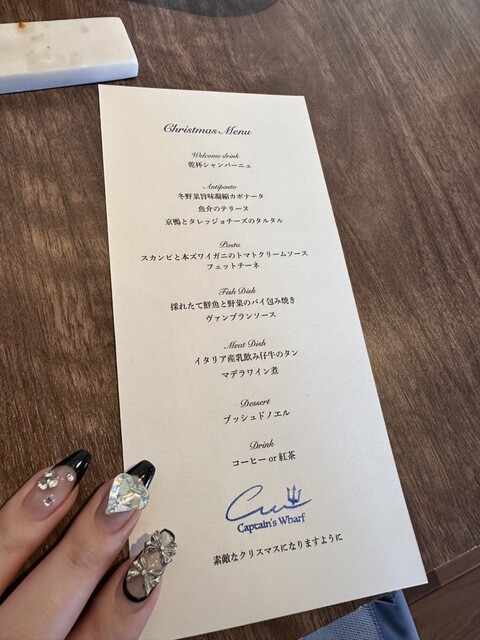 Christmas Menu
Welcome drink
乾杯シャンパーニュ
Antipasto
冬野菜旨味凝縮カポナータ
魚介のテリーヌ
京鴨とタレッジョチーズのタルタル
Pasta
スカンピと本ズワイガニのトマトクリームソース
フェットチーネ
Fish Dish
採れたて鮮魚と野菜のパイ包み焼き
ヴァンブランソース
Meat Dish
イタリア産乳飲み仔牛のタン
マデラワイン煮
Dessert
ブッシュドノエル
Drink
コーヒー or 紅茶
Captain's Wharf
素敵なクリスマスになりますように